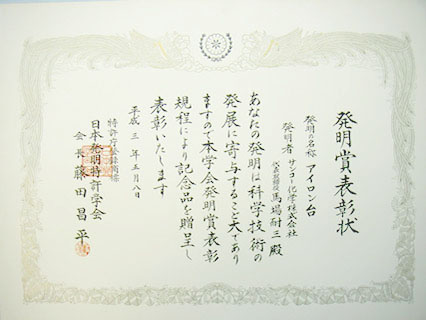 発明賞表彰状
発明の名称 アイロン台
発明者 サンコー化学株式会社
代表取締役 馬場耐三殿
あなたの発明は科学技術の
発展に寄与すること大であり
ますので本学会発明賞表彰
規程により記念品を贈呈し
表彰いたします
平成三年五月八日
特許庁登録商標
日本発明特許学会
会長 藤田昌平